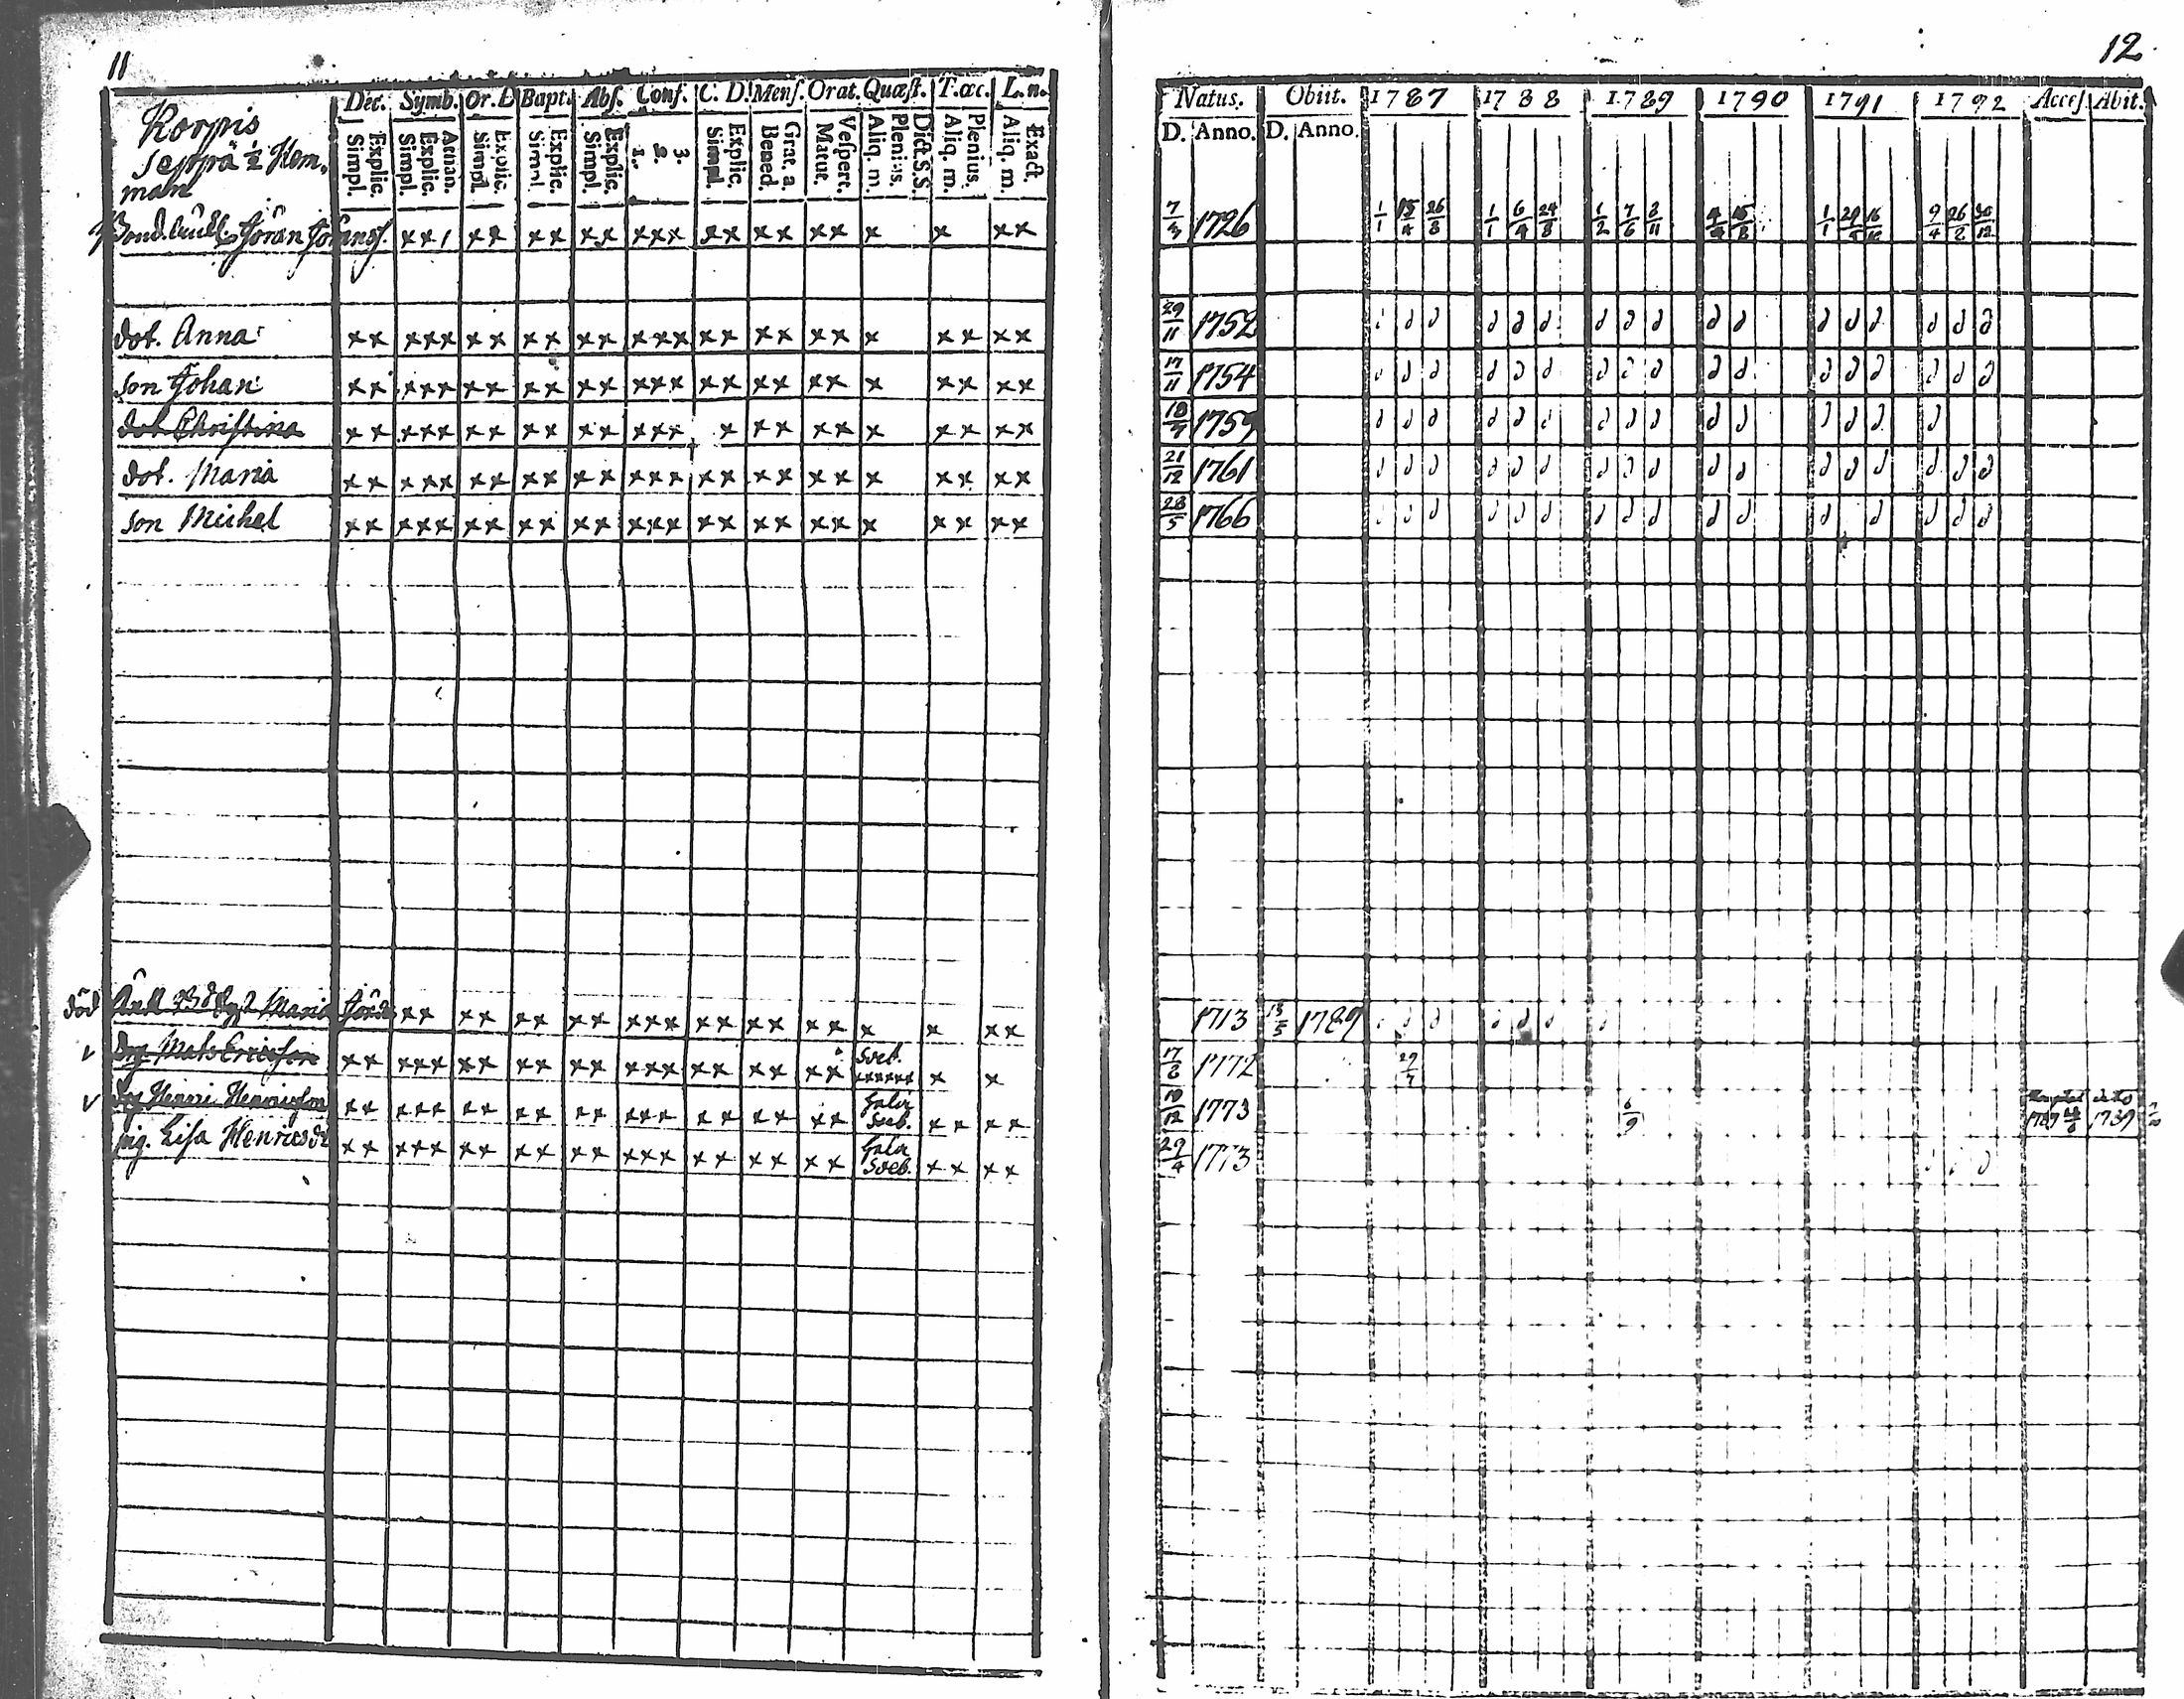 11
Korpis
Seppä ½ Hem,
man
Dec. Symb. Or. D Bapt. Abs. Conf. C. D. Mens. Orat. Quæst. T.œc. L.n.
Explic. Simpl. Athan. Explic. Simpl. Explic. Simpl. Explic. Simpl. Explic. Simpl. 3. 2. 1. Explic. Simpl. Grat. a. Bened. Vespert. Matut. Dict.S.S. Plenius. Aliq. m. Plenius. Aliq. m. Exact. Aliq. m.
Jöran
x x 1 x x x x x x x x x x x x x x x x x x x
dot. Anna x x x x x x x x x x x x x x x x x x x x x x x x x
son Johan x x x x x x x x x x x x x x x x x x x x x x x x x
dot Christina x x x x x x x x x x x x x x x x x x x x x x x x
dot. Maria x x x x x x x x x x x x x x x x x x x x x x x x x
son Michel x x x x x x x x x x x x x x x x x x x x x x x x x
död Maria x x x x x x x x x x x x x x x x x x x x x
Mats Ericsson x x x x x x x x x x x x x x x x x x x x Sveb. x x x x x x x x
Henric Henricsson x x x x x x x x x x x x x x x x x x x x Sveb. x x x x
pig. Lisa Henricsdr x x x x x x x x x x x x x x x x x x x x Sveb. x x x x
12
Natus. Obiit. 1787 1788 1789 1790 1791 1792 Acces. Abit.
D. Anno. D. Anno.
7/3 1726 1/1 15/4 26/8 1/1 6/4 24/8 1/2 7/6 8/11 4/4 15/8 1/1 9/4 26/8 30/12
29/11 1752
17/11 1754
18/7 1759
21/12 1761
28/5 1766
1713 13/5 1789
17/6 1772 29/7
10/12 1773 6/9 1789
29/4 1773